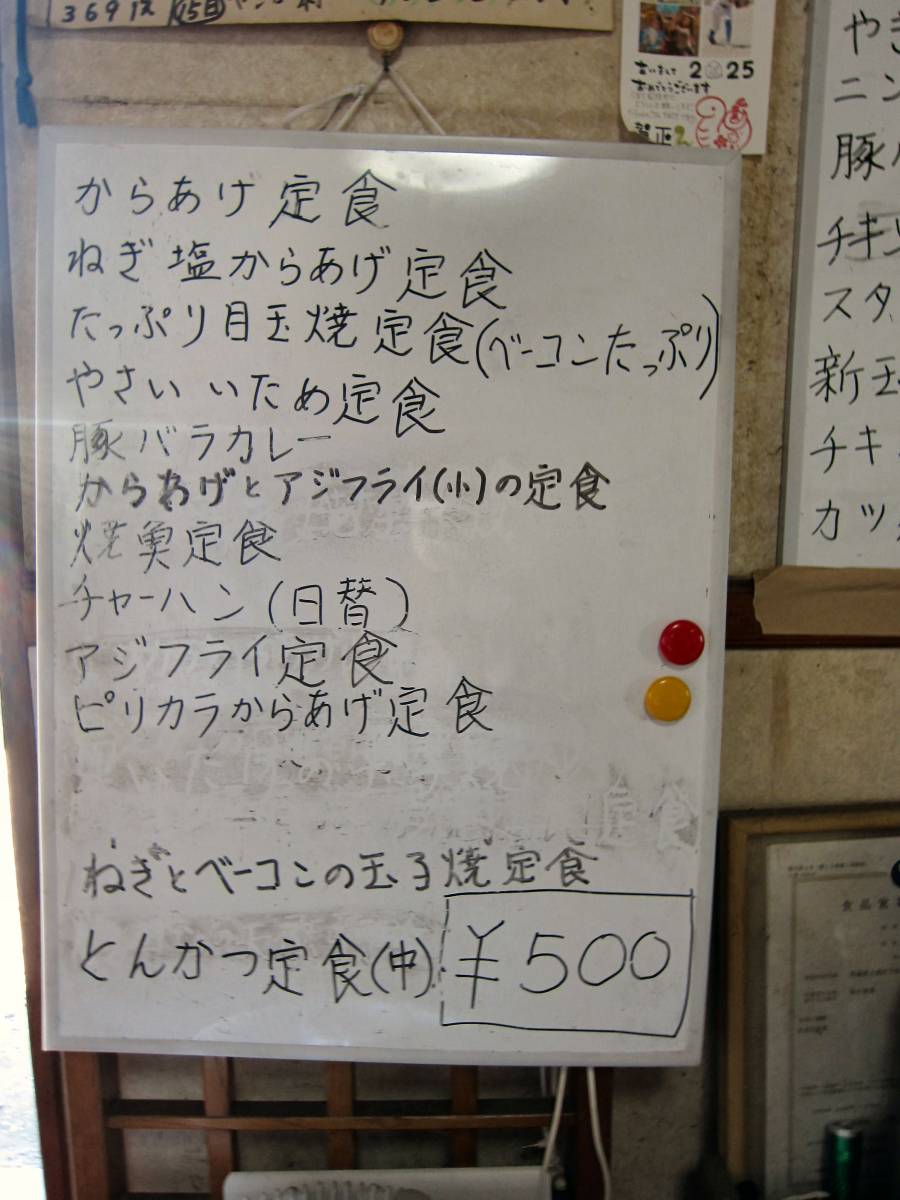 369
15日
2025
おめでとうございます
賀正
からあげ定食
ねぎ塩からあげ定食
たっぷり目玉焼定食(ベーコンたっぷり)
やさいいため定食
豚バラカレー
からあげとアジフライ(小)の定食
焼魚定食
チャーハン(日替)
アジフライ定食
ピリカラからあげ定食
定食
ねぎとベーコンの玉子焼定食
とんかつ定食(中) ¥500
やき
ニン
豚バ
チキン
スタ
新玉
チキ
カツ